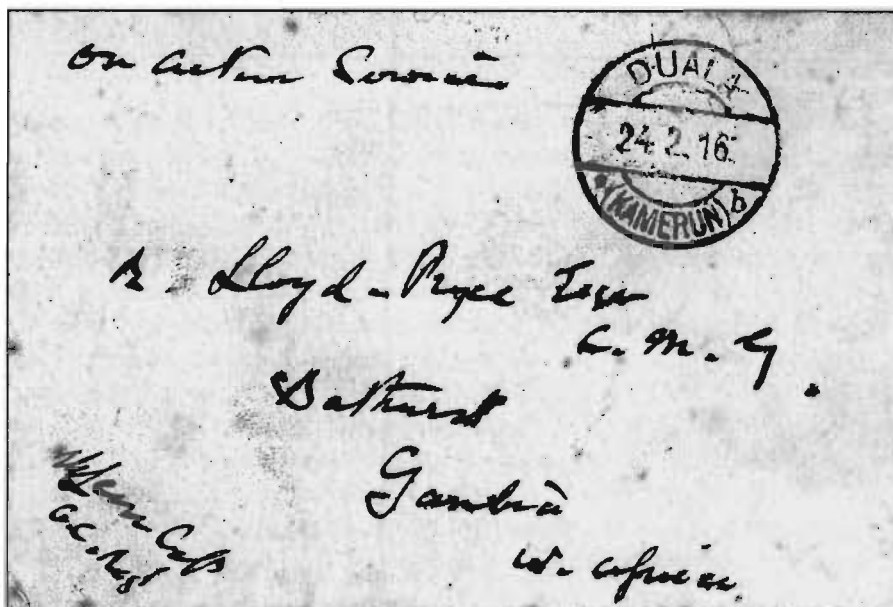 on active Service
DUALA
24.2.16.
(KAMERUN) b
Lloyd-Pryce Esqr
C.M.G.
Bathurst
Gambia
W. Africa
Capt
G.C. Regt